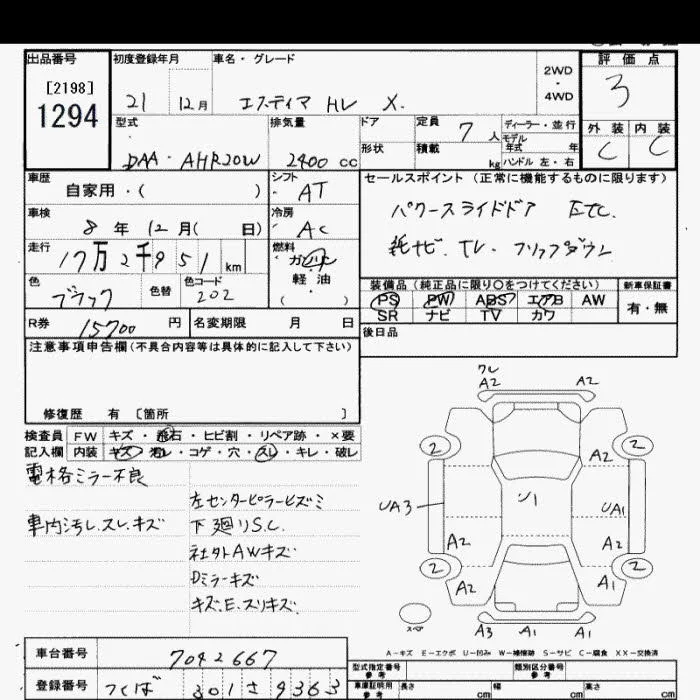 出品番号 初度登録年月 車名・グレード 2WD・4WD 評価点
[2198] 1294 21 12月 エスティマ HV X. 3
型式 排気量 ドア 定員 7 人 ディーラー・並行 外装 内装
モデル年式 年
DAA・AHR20W 2400 cc 形状 積載 kg ハンドル 左・右 C C
車歴 シフト セールスポイント (正常に機能するものに限ります)
自家用・( ) AT
パワースライドドア ETC.
車検 8年12月( 日) 冷房 AC
純ナビ.TV.フリップダウン
走行 17万2千951 km 燃料 ガソリン 軽油 ( )
色 ブラック 色替 色コード 202
装備品 (純正品に限り○をつけてください) 新車保証書
PS PW ABS エアB AW 有・無
SR ナビ TV カワ
R券 15700 円 名変期限 月 日 後日品
注意事項申告欄(不具合内容等は具体的に記入して下さい)
修復歴 有 〔箇所 〕
検査員 FW キズ・飛石・ヒビ割・リペア跡・×要
記入欄 内装 キズ・汚レ・コゲ・穴・スレ・キレ・破レ
電格ミラー不良
左センターピラーヒズミ
車内汚レ.スレ.キズ 下廻りS.C.
社外AWキズ
Dミラーキズ
キズ.E.スリキズ.
ワレ
A2 A2
2 2
A2
UA3 ソ1 UA1
A2 A2
2 2
A2 A1
スペア
A3 A1 A1
A-キズ E-エクボ U-凹み W-補修跡 S-サビ C-腐食 XX-交換済
車台番号 7042667
型式指定番号 参考 類別区分番号 参考
登録番号 つくば 301 さ 9363
車庫証明用 参考 長さ cm 幅 cm 高さ cm